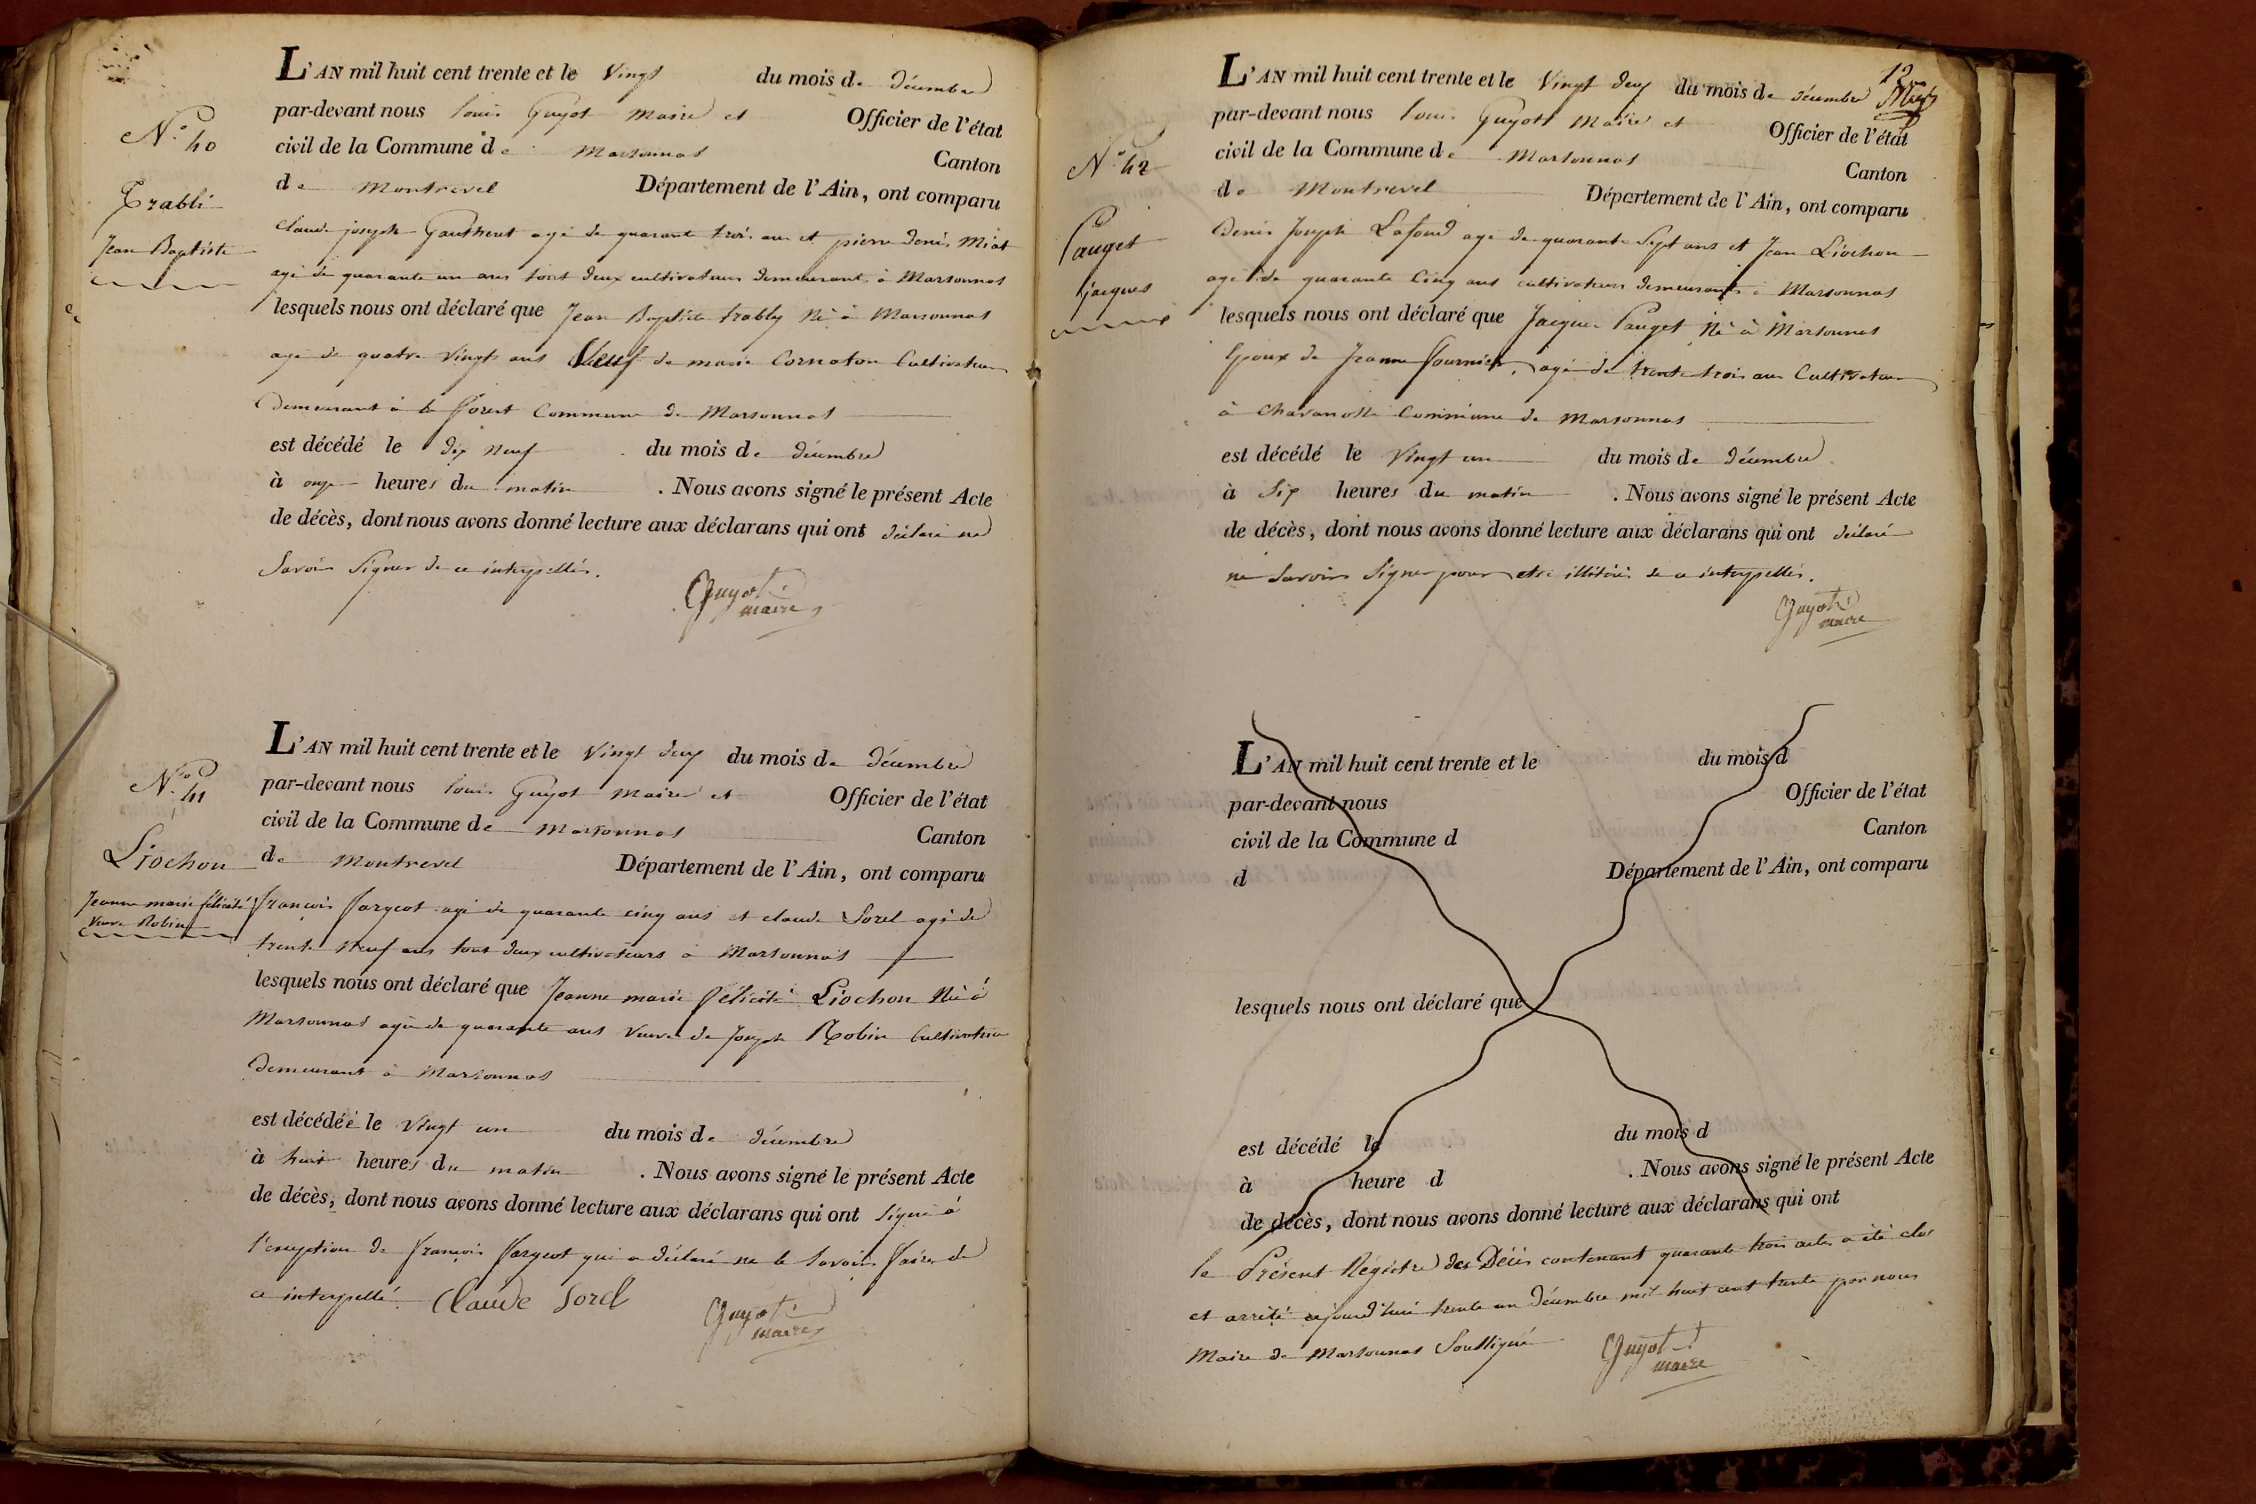 N.º 40
Trabli
Jean Baptiste
L'AN mil huit cent trente et le Vingt du mois de décembre
par-devant nous Louis Guyot Maire et Officier de l'état
civil de la Commune de Marsonnas Canton
de Montrevel Département de l'Ain, ont comparu
Claude joseph Gautheret agé de quarante trois ans et pierre denis Miat
agé de quarante un ans tout deux cultivateurs demeurants à Marsonnas
lesquels nous ont déclaré que Jean Baptiste trably Né à Marsonnas
agé de quatre Vingts ans Veuf de marie Cornaton Cultivateur
demeurant à la forest Commune de Marsonnas
est décédé le dix Neuf du mois de décembre
à onze heures du matin . Nous avons signé le présent Acte
de décès, dont nous avons donné lecture aux déclarans qui ont déclaré ne
Savoir Signer de ce interpellés.
Guyot
maire
N.º 41
Liochon
Jeanne marie félicité
Veuve Robin
L'AN mil huit cent trente et le Vingt deux du mois de décembre
par-devant nous Louis Guyot Maire et Officier de l'état
civil de la Commune de Marsonnas Canton
de Montrevel Département de l'Ain, ont comparu
françois fargeot agé de quarante cinq ans et claude Sorel agé de
trente Neuf ans tout deux cultivateurs à Marsonnas
lesquels nous ont déclaré que Jeanne marie félicité Liochon Né à
Marsonnas agée de quarante ans Veuve de Joseph Robin Cultivatrice
demeurant à Marsonnas
est décédée le Vingt un du mois de décembre
à huit heures du matin . Nous avons signé le présent Acte
de décès, dont nous avons donné lecture aux déclarans qui ont signé à
l'exception de françois fargeot qui a déclaré ne le Savoir faire de
ce interpellé. Claude Sorel
Guyot
maire
12
N.º 42
Pauget
jacques
L'AN mil huit cent trente et le Vingt deux du mois de décembre
par-devant nous Louis Guyot Maire et Officier de l'état
civil de la Commune de Marsonnas Canton
de Montrevel Département de l'Ain, ont comparu
Denis Joseph Lafond agé de quarante Sept ans et Jean Liochon
agé de quarante Cinq ans cultivateurs demeurants à Marsonnas
lesquels nous ont déclaré que Jacques Pauget Né à Marsonnas
Epoux de Jeanne fournier, agé de trente trois ans Cultivateur
à Chavanosse Commune de Marsonnas
est décédé le Vingt un du mois de décembre
à Six heures du matin . Nous avons signé le présent Acte
de décès, dont nous avons donné lecture aux déclarans qui ont déclaré
ne Savoir Signer pour etre illitérés de ce interpellés.
Guyot
maire
L'AN mil huit cent trente et le du mois d
par-devant nous Officier de l'état
civil de la Commune d Canton
d Département de l'Ain, ont comparu
lesquels nous ont déclaré que
est décédé le du mois d
à heure d . Nous avons signé le présent Acte
de décès, dont nous avons donné lecture aux déclarans qui ont
le Présent Régistre des Décès contenant quarante trois actes a été clos
et arrêté aujourd'hui trente un décembre mil huit cent trente par nous
Maire de Marsonnas Soussigné
Guyot
maire